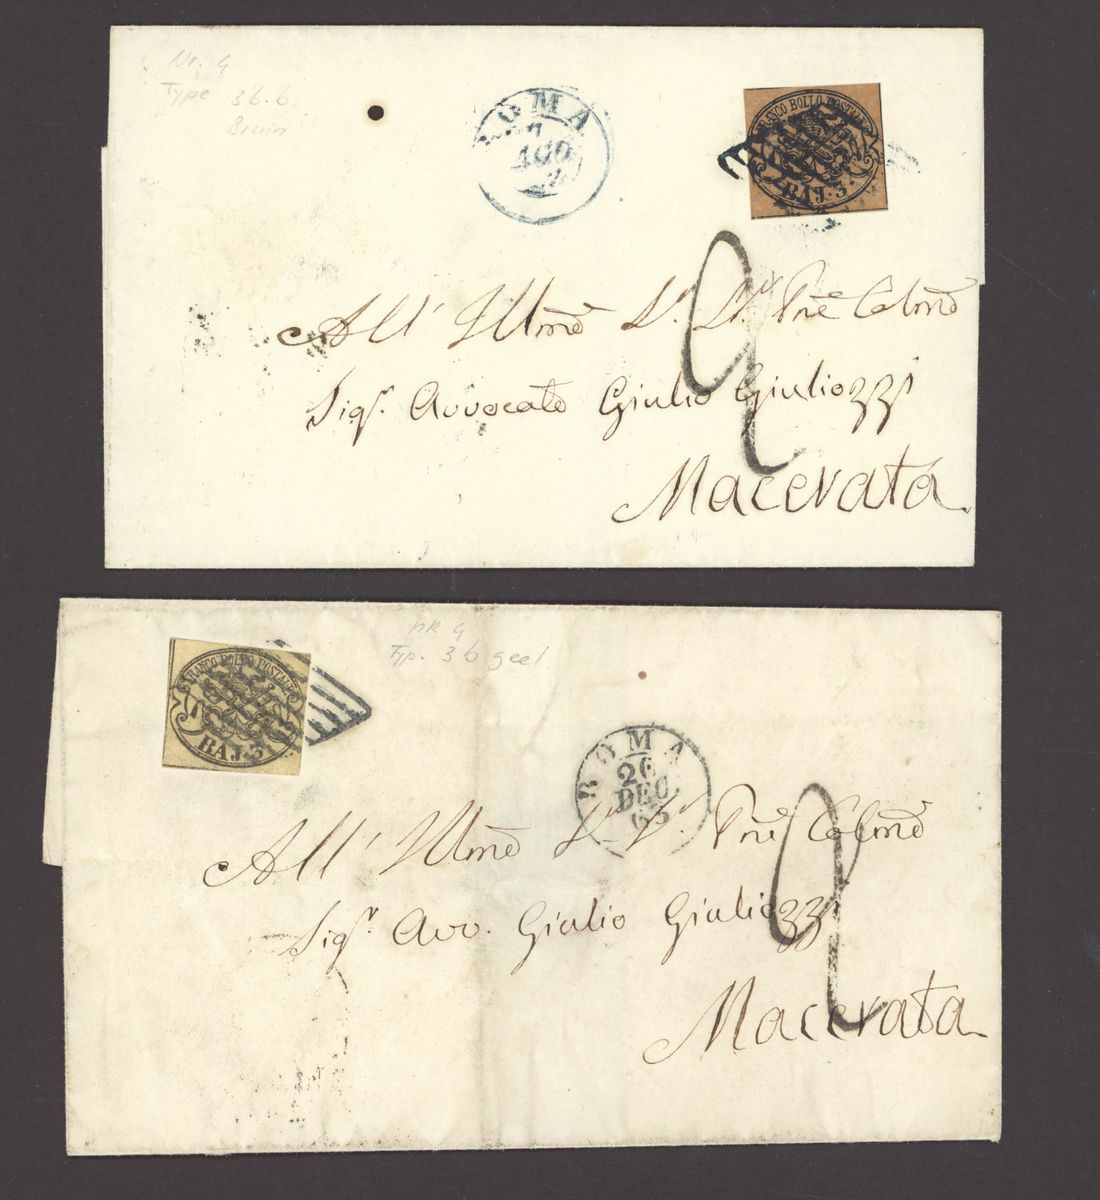 Nr. 4
Type 3b.b.
Bruin
ROMA
7
AGO
FRANCO BOLLO POSTALE
BAJ. 3.
2
All' Illmo Sr. Sr. Pne Colmo
Sigr. Avvocato Giulio Giuliozzi
Macerata
NR 4
Typ. 3b geel
FRANCO BOLLO POSTALE
BAJ. 3.
ROMA
26
DEC.
63
2
All' Illmo Sr. Sr. Pne Colmo
Sigr. Avv. Giulio Giuliozzi
Macerata